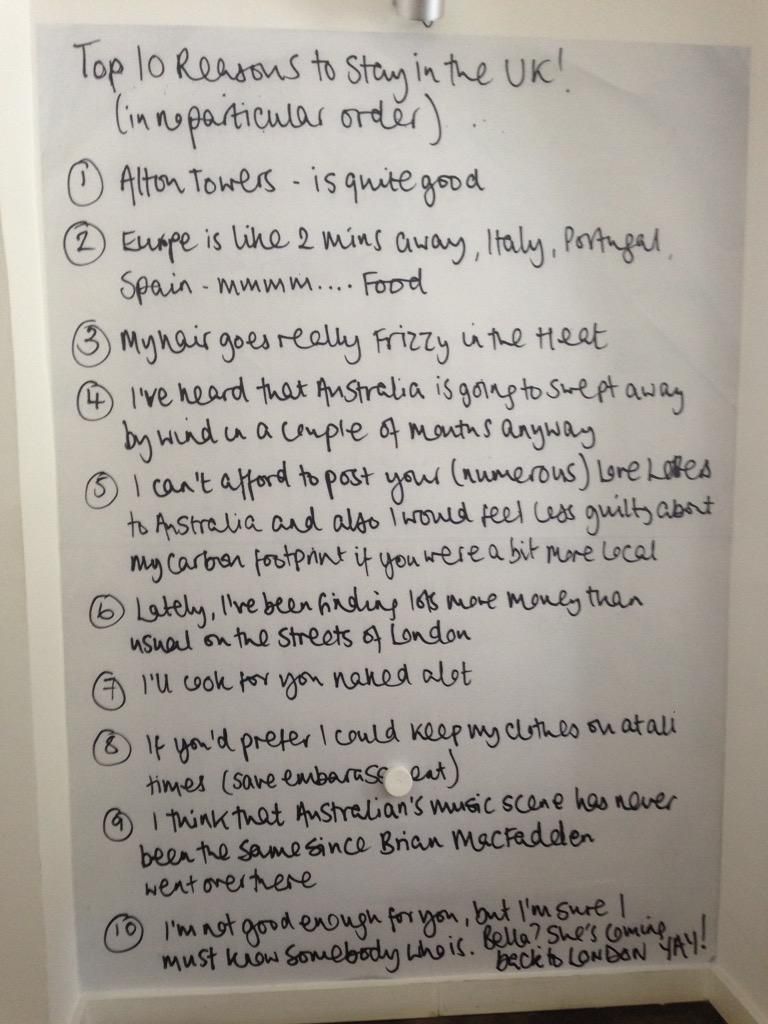 Top 10 Reasons to Stay in the UK!
(in no particular order)
① Alton Towers - is quite good
② Europe is like 2 mins away, Italy, Portugal,
Spain - mmmm.... Food
③ My hair goes really Frizzy in the Heat
④ I've heard that Australia is going to swept away
by wind in a couple of months anyway
⑤ I can't afford to post your (numerous) Love
to Australia and also I would feel less guilty about
my carbon footprint if you were a bit more local
⑥ Lately, I've been finding lots more money than
usual on the streets of London
⑦ I'll cook for you naked alot
⑧ If you'd prefer I could keep my clothes on at all
times (save embarass ent)
⑨ I think that Australian's music scene has never
been the same since Brian MacFadden
went over there
⑩ I'm not good enough for you, but I'm sure I
must know somebody who is. Bella? She's coming
back to LONDON YAY!